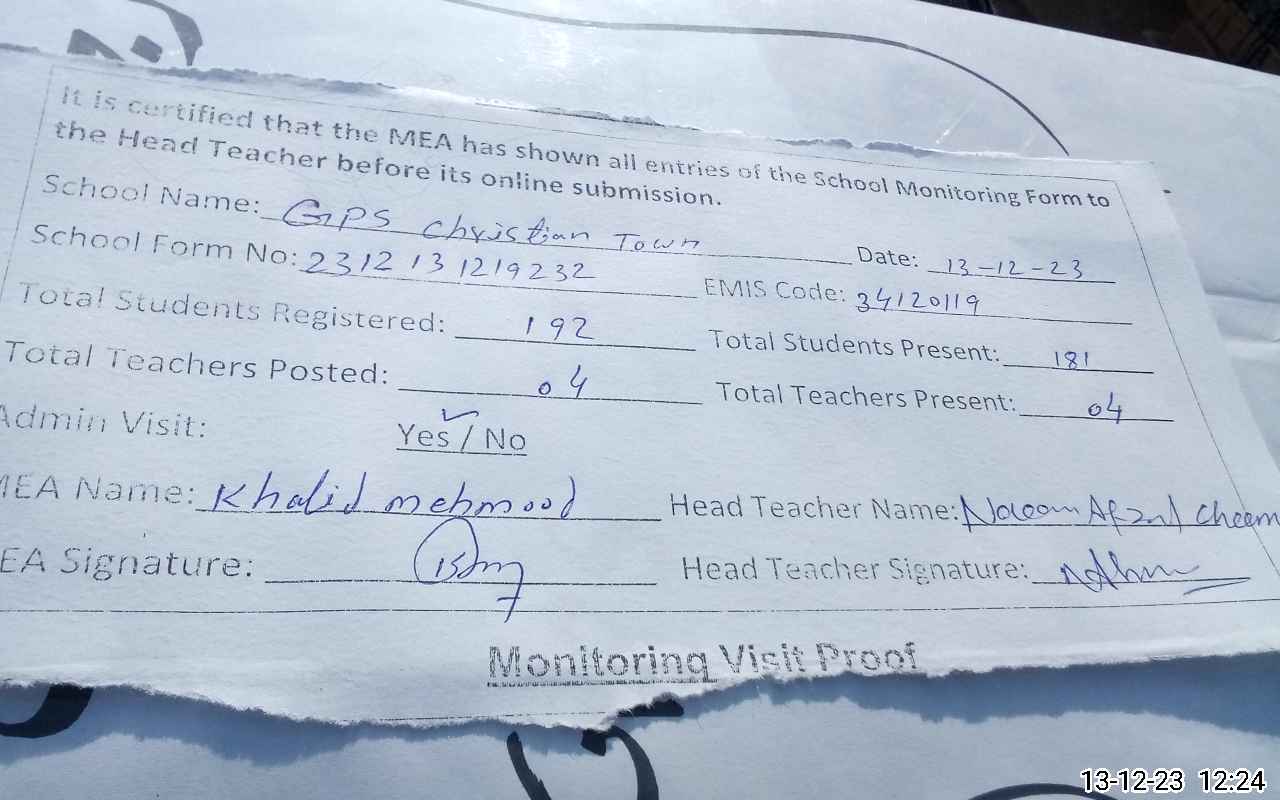 It is certified that the MEA has shown all entries of the School Monitoring Form to
the Head Teacher before its online submission.
School Name: GPS Christian Town Date: 13-12-23
School Form No: 2312131219232 EMIS Code: 34120119
Total Students Registered: 192 Total Students Present: 181
Total Teachers Posted: 04 Total Teachers Present: 04
Admin Visit: Yes / No
MEA Name: Khalid mehmood Head Teacher Name: Cheem
EA Signature: Head Teacher Signature:
Monitoring Visit Proof
13-12-23 12:24